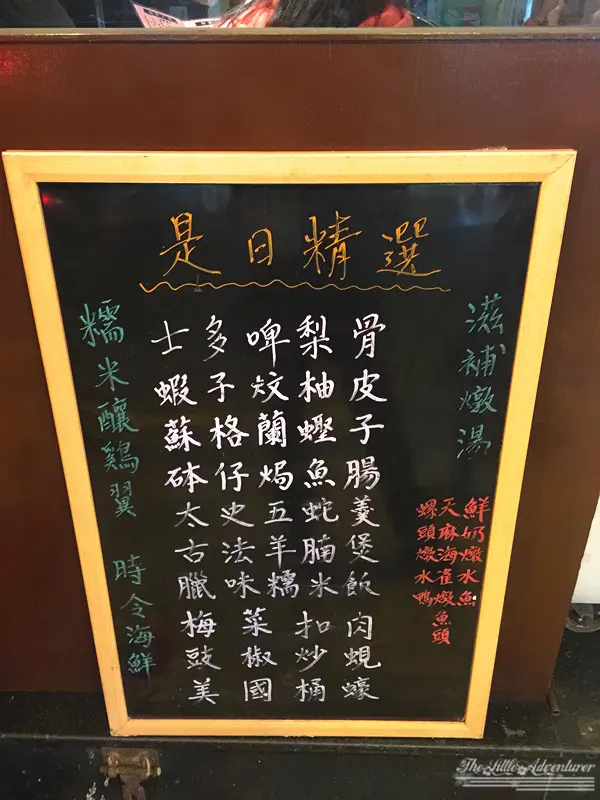 是日精選
糯米釀鷄翼 時令海鮮
士多啤梨骨
蝦子炆柚皮
蘇格蘭蟶子
砵仔焗魚腸
太史五蛇羹
古法羊腩煲
臘味糯米飯
梅菜扣肉
豉椒炒蜆
美國桶蠔
滋補燉湯
鮮奶燉水魚
天麻海崔燉魚頭
螺頭燉水鴨
The Little Adventurer